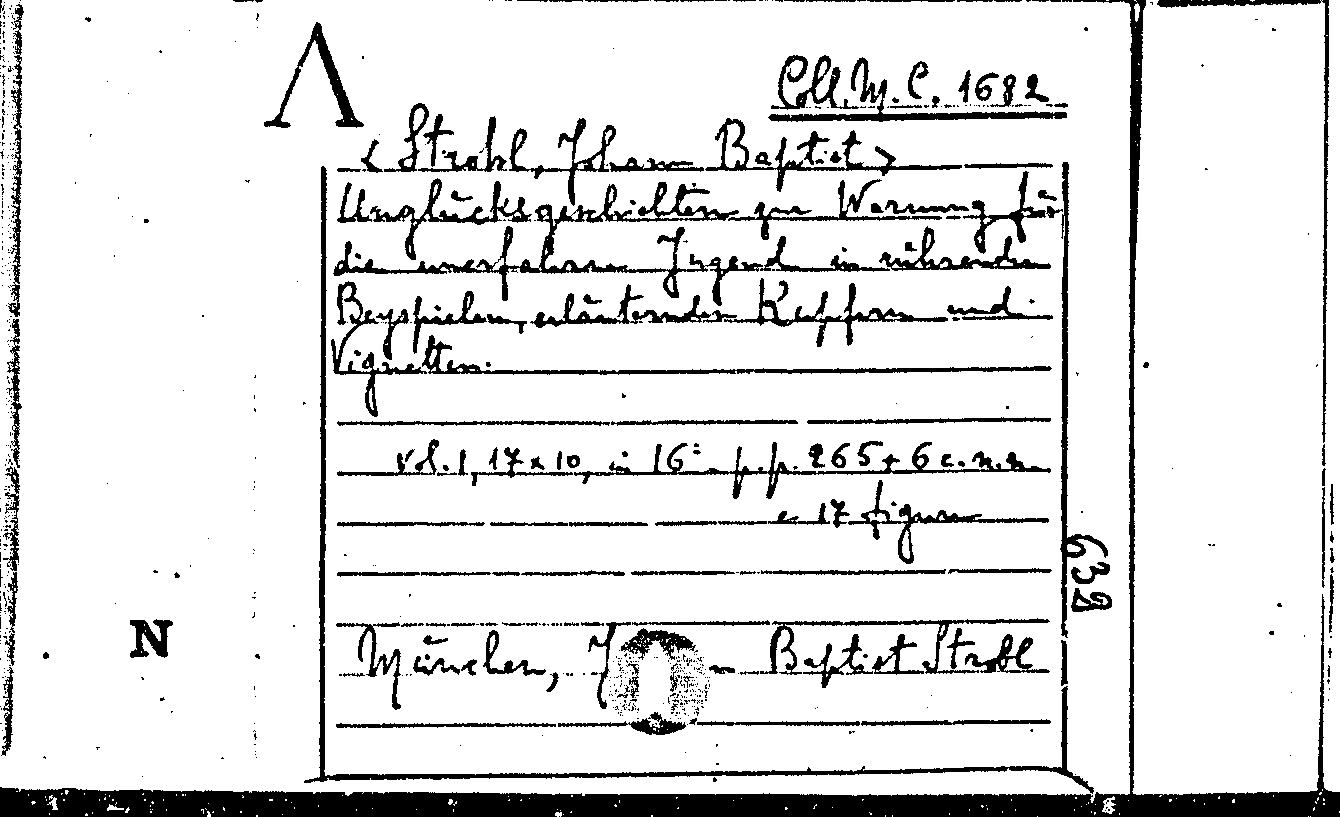 Λ
Coll. M. C. 1682
< Strobl, Johann Baptist >
Unglücksgeschichten zur Warnung für
die unerfahrne Jugend in rührenden
Beyspielen, erläuternden Kupfern und
Vignetten.
vol. 1, 17 x 10, in 16° p.p. 265 + 6 c.n.n.
e 17 figure
632
N
München, Baptist Strobl